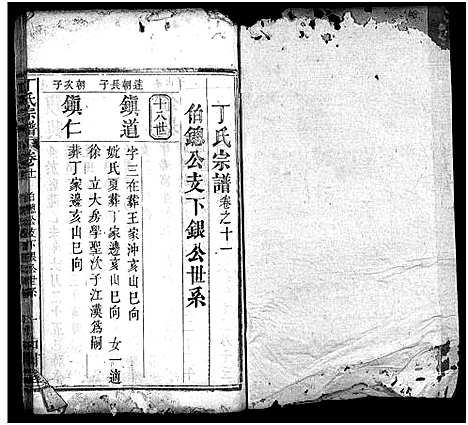 丁氏宗譜卷之十一
伯鍶公支下銀公世系
十八世
達朝長子
鎮道
字三在葬王家沖亥山巳向
妣氏夏葬丁家邊亥山巳向 女一適
徐 立大房學聖次子江漢為嗣
朝次子
鎮仁
葬丁家邊亥山巳向
丁氏宗譜 卷十一 伯鍶公支下銀公世系 一